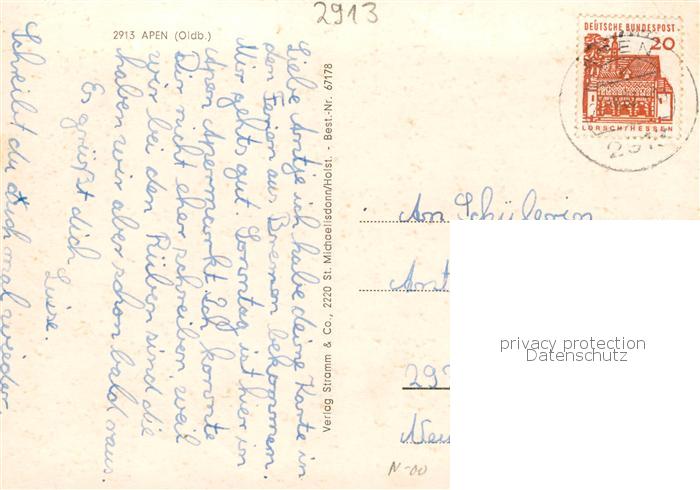 2913
2913 APEN (Oldb.)
Liebe Antje ich habe deine Karte in
den Ferien aus Bremen bekommen.
Mir gehts gut. Sonntag ist hier in
Apen Apermarkt. Ich konnte
Dir nicht eher schreiben weil
wir bei den Rüben sind die
haben wir aber schon bald raus.
Es grüßt dich
Luise.
Schreibst du dich mal wieder
Verlag Stramm & Co., 2220 St. Michaelisdonn/Holst. - Best.-Nr. 67178
DEUTSCHE BUNDESPOST
20
LORSCH/HESSEN
An Schülerin
Ant
292
N-00
privacy protection
Datenschutz